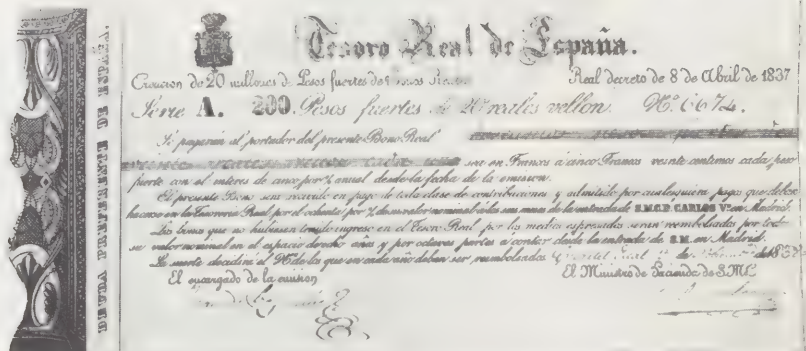 DEUDA PREFERENTE DE ESPAÑA.
Tesoro Real de España.
Creacion de 20 millones de Pesos fuertes de
Real decreto de 8 de Abril de 1837
Serie A. 200 Pesos fuertes de 20 reales vellon. Nº 6674.
Se pagarán al portador del presente Bono Real
sea en Francos á cinco Francos veinte centimos cada peso
fuerte con el interes de cinco por % anual desde la fecha de la emision.
El presente Bono será recibido en pago de toda clase de contribuciones y admitido por cualesquiera pagos que deban
hacerse en la Tesoreria Real por el ochenta por % de su valor nominal á los seis meses de la entrada de S.M.C.D. CARLOS Vº en Madrid.
Los bonos que no hubiesen tenido ingreso en el Tesoro Real por los medios espresados seran reembolsados por todo
su valor nominal en el espacio de ocho años y por octavas partes á contar desde la entrada de S.M. en Madrid.
La suerte decidirá el Nº de los que en cada año deben ser reembolsados Cuartel Real de 183
El encargado de la emision
El Ministro de Hacienda de S.M.C.